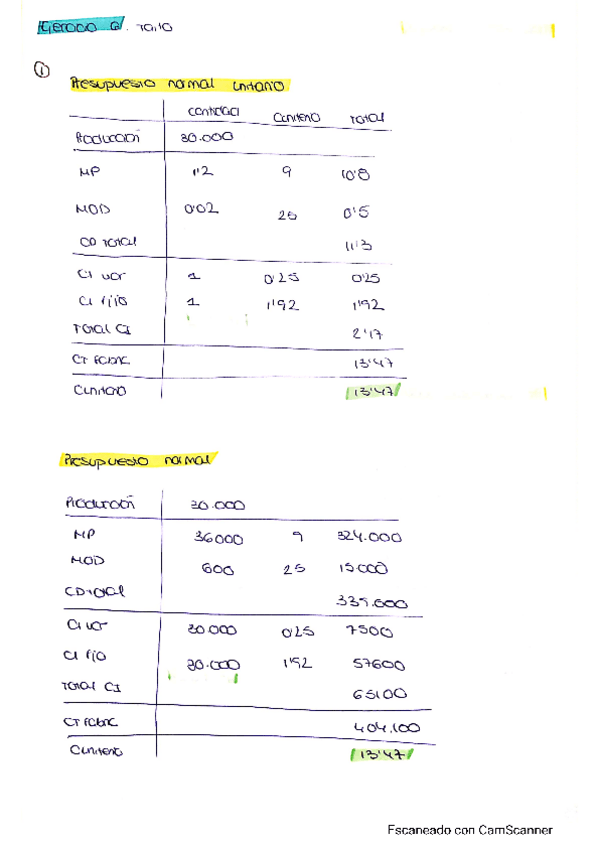 Ejercicio 6. Tario
①
Presupuesto normal unitario
Cantidad C unitario Total
Producción 30.000
MP 1'2 9 10'8
MOD 0'02 25 0'5
CD TOTAL 11'3
CI var 1 0'25 0'25
CI fijo 1 1'92 1'92
TOTAL CI 2'17
CT FABRIC 13'47
C unitario 13'47
Presupuesto normal
Producción 30.000
MP 36000 9 324.000
MOD 600 25 15000
CD TOTAL 339.000
CI var 30.000 0'25 7500
CI fijo 30.000 1'92 57600
TOTAL CI 65100
CT FABRIC 404.100
C unitario 13'47
Escaneado con CamScanner